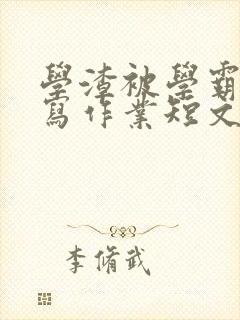 學渣被學霸
寫作業短文
李脩武